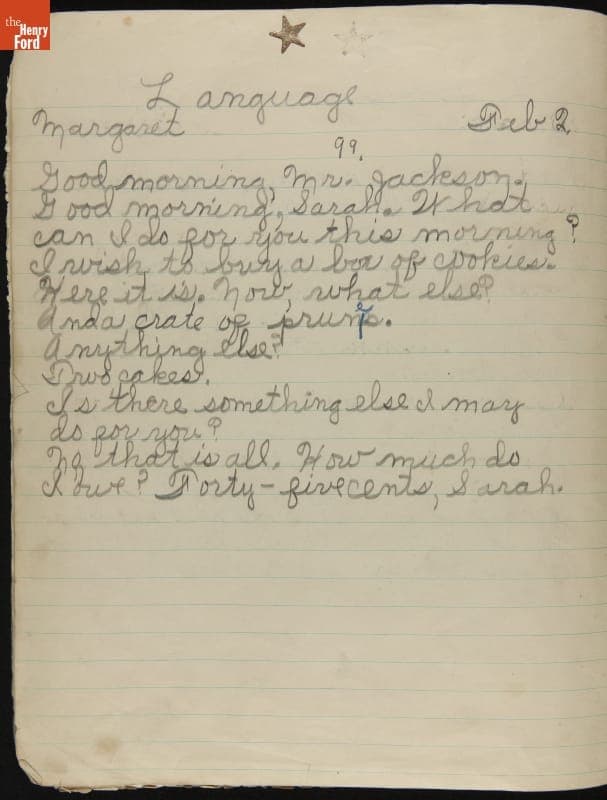 the
Henry
Ford
Language
Margaret Feb 2
99.
Good morning, Mr. Jackson.
Good morning, Sarah. What
can I do for you this morning?
I wish to buy a box of cookies.
Here it is. Now, what else?
And a crate of prunes.
Anything else?
Two cakes.
Is there something else I may
do for you?
No that is all. How much do
I owe? Forty-five cents, Sarah.